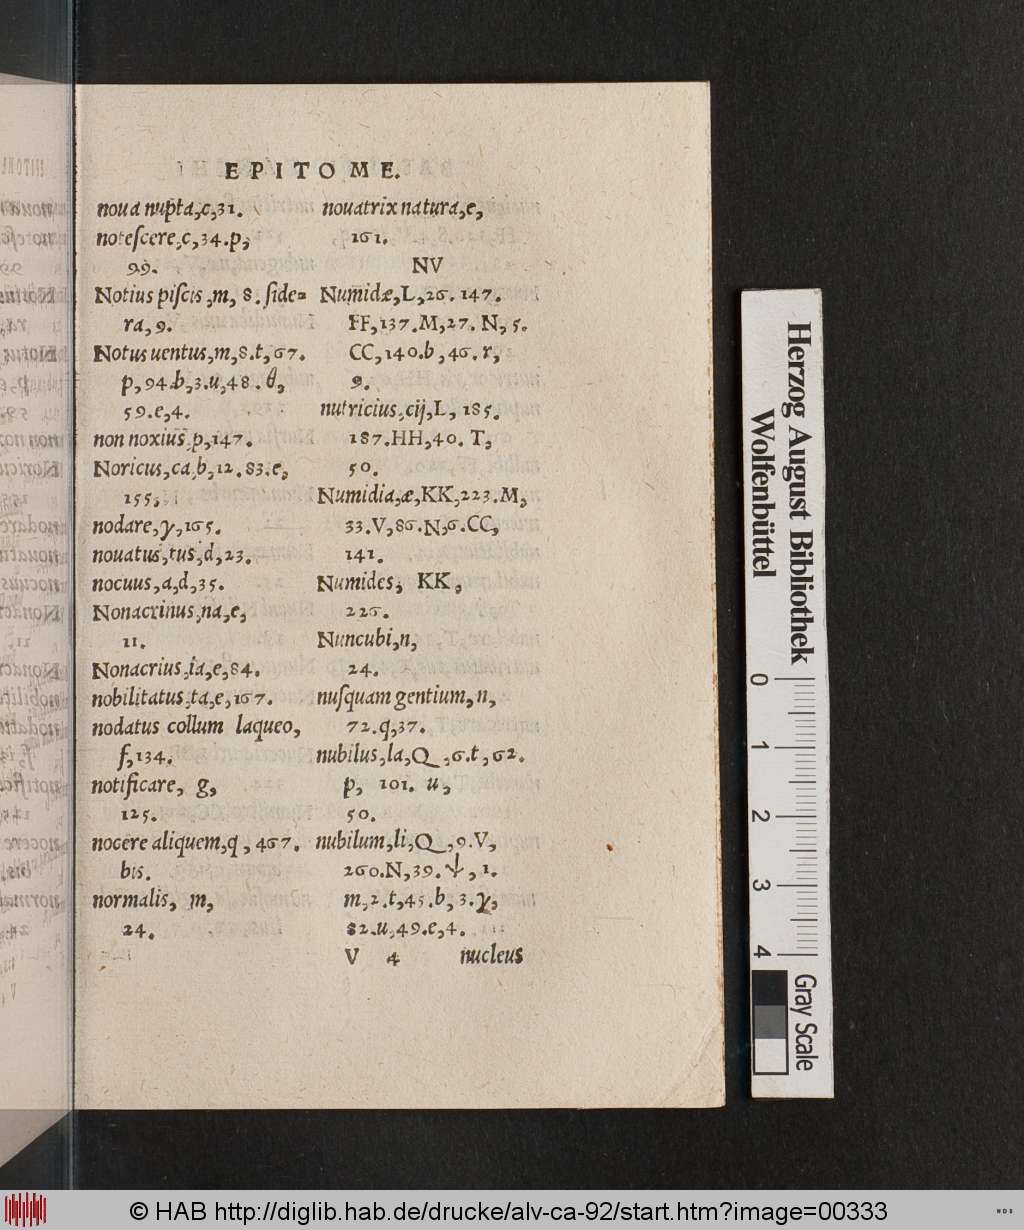 EPITOME.
noua nupta,c,31.
notescere,c,34.p,
99.
Notius piscis,m, 8. side=
ra,9.
Notus uentus,m,8.t,67.
p,94.b,3.u,48.θ,
59.e,4.
non noxius p,147.
Noricus,ca,b,12.83.e,
155,
nodare,γ,165.
nouatus,tus,d,23.
nocuus,a,d,35.
Nonacrinus,na,e,
11.
Nonacrius,ia,e,84.
nobilitatus,ta,e,167.
nodatus collum laqueo,
f,134.
notificare, g,
125.
nocere aliquem,q, 467.
bis.
normalis, m,
24.
nouatrix natura,e,
161.
NV
Numidæ,L,26.147.
FF,137.M,27.N,5.
CC,140.b,46.r,
9.
nutricius,cij,L, 185.
187.HH,40. T,
50.
Numidia,æ,KK,223.M,
33.V,86.N,6.CC,
141.
Numides, KK,
226.
Nuncubi,n,
24.
nusquam gentium,n,
72.q,37.
nubilus,la,Q,6.t,62.
p, 101. u,
50.
nubilum,li,Q,9.V,
260.N,39.Ψ,1.
m,2.t,45.b,3.γ,
82.u,49.e,4.
V 4 nucleus
Herzog August Bibliothek
Wolfenbüttel
0 1 2 3 4
Gray Scale
© HAB http://diglib.hab.de/drucke/alv-ca-92/start.htm?image=00333